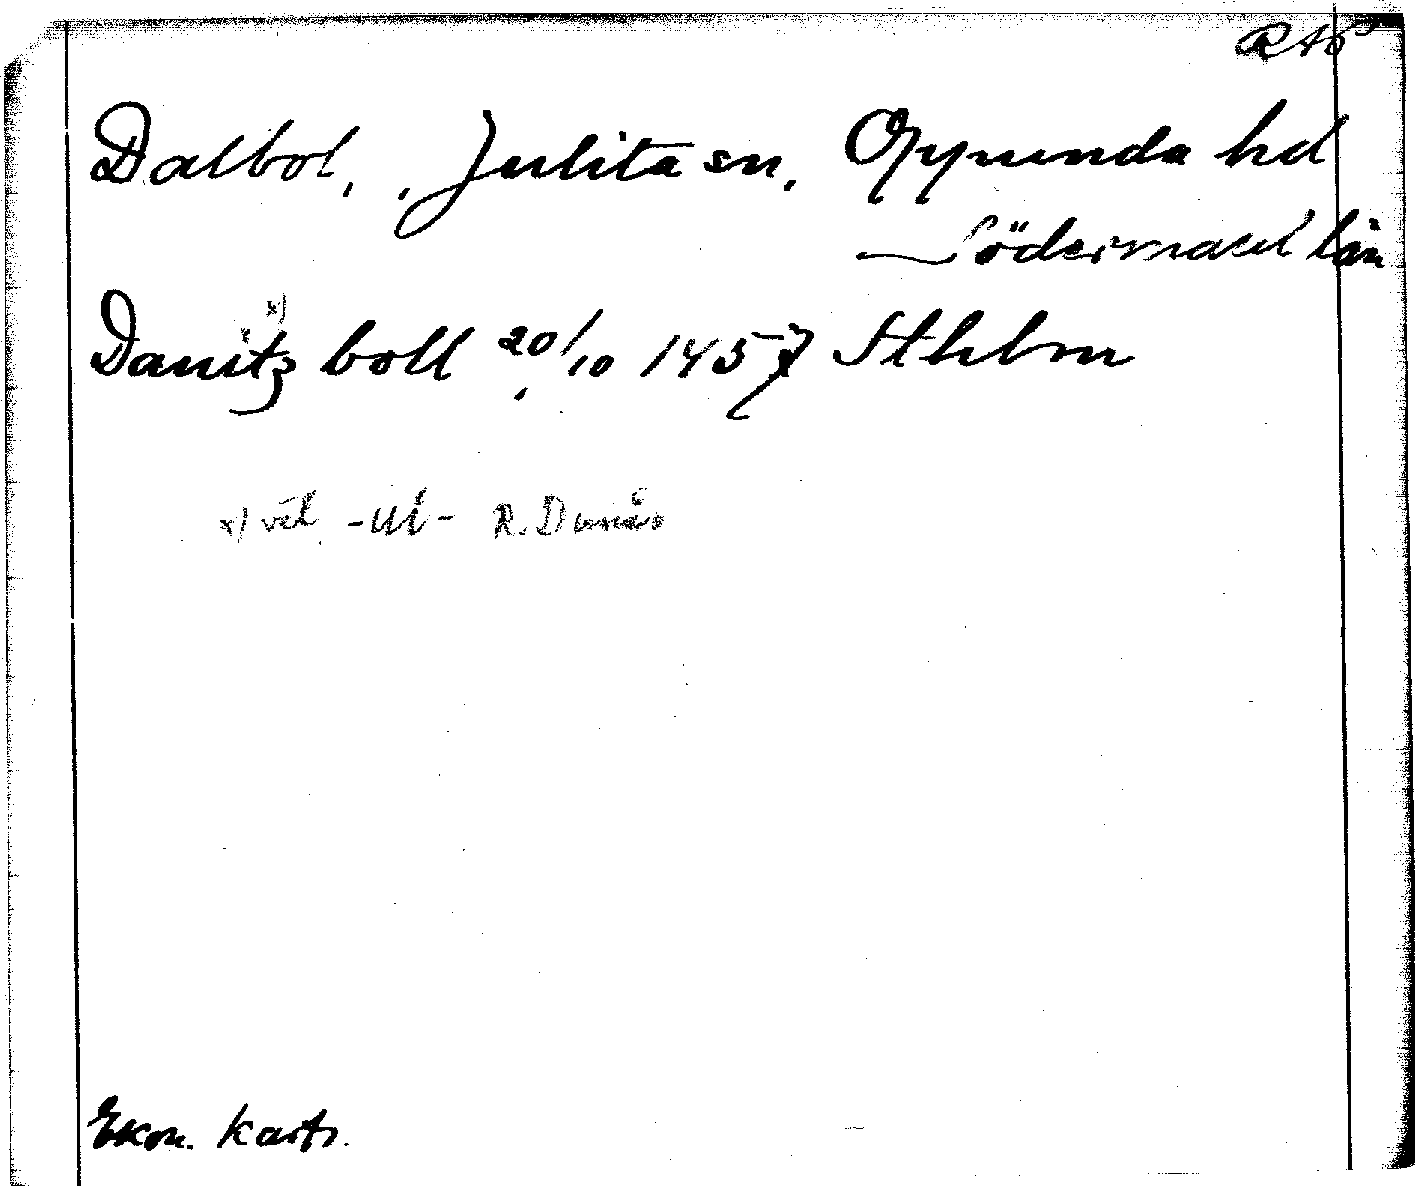 RAp
Dalbol, Julita sn, Oppunda hd
Södermanl län
Danitz x) boll 20/10 1457 Sthlm
x) väl -ui- R. Danås
Ekon. karta.